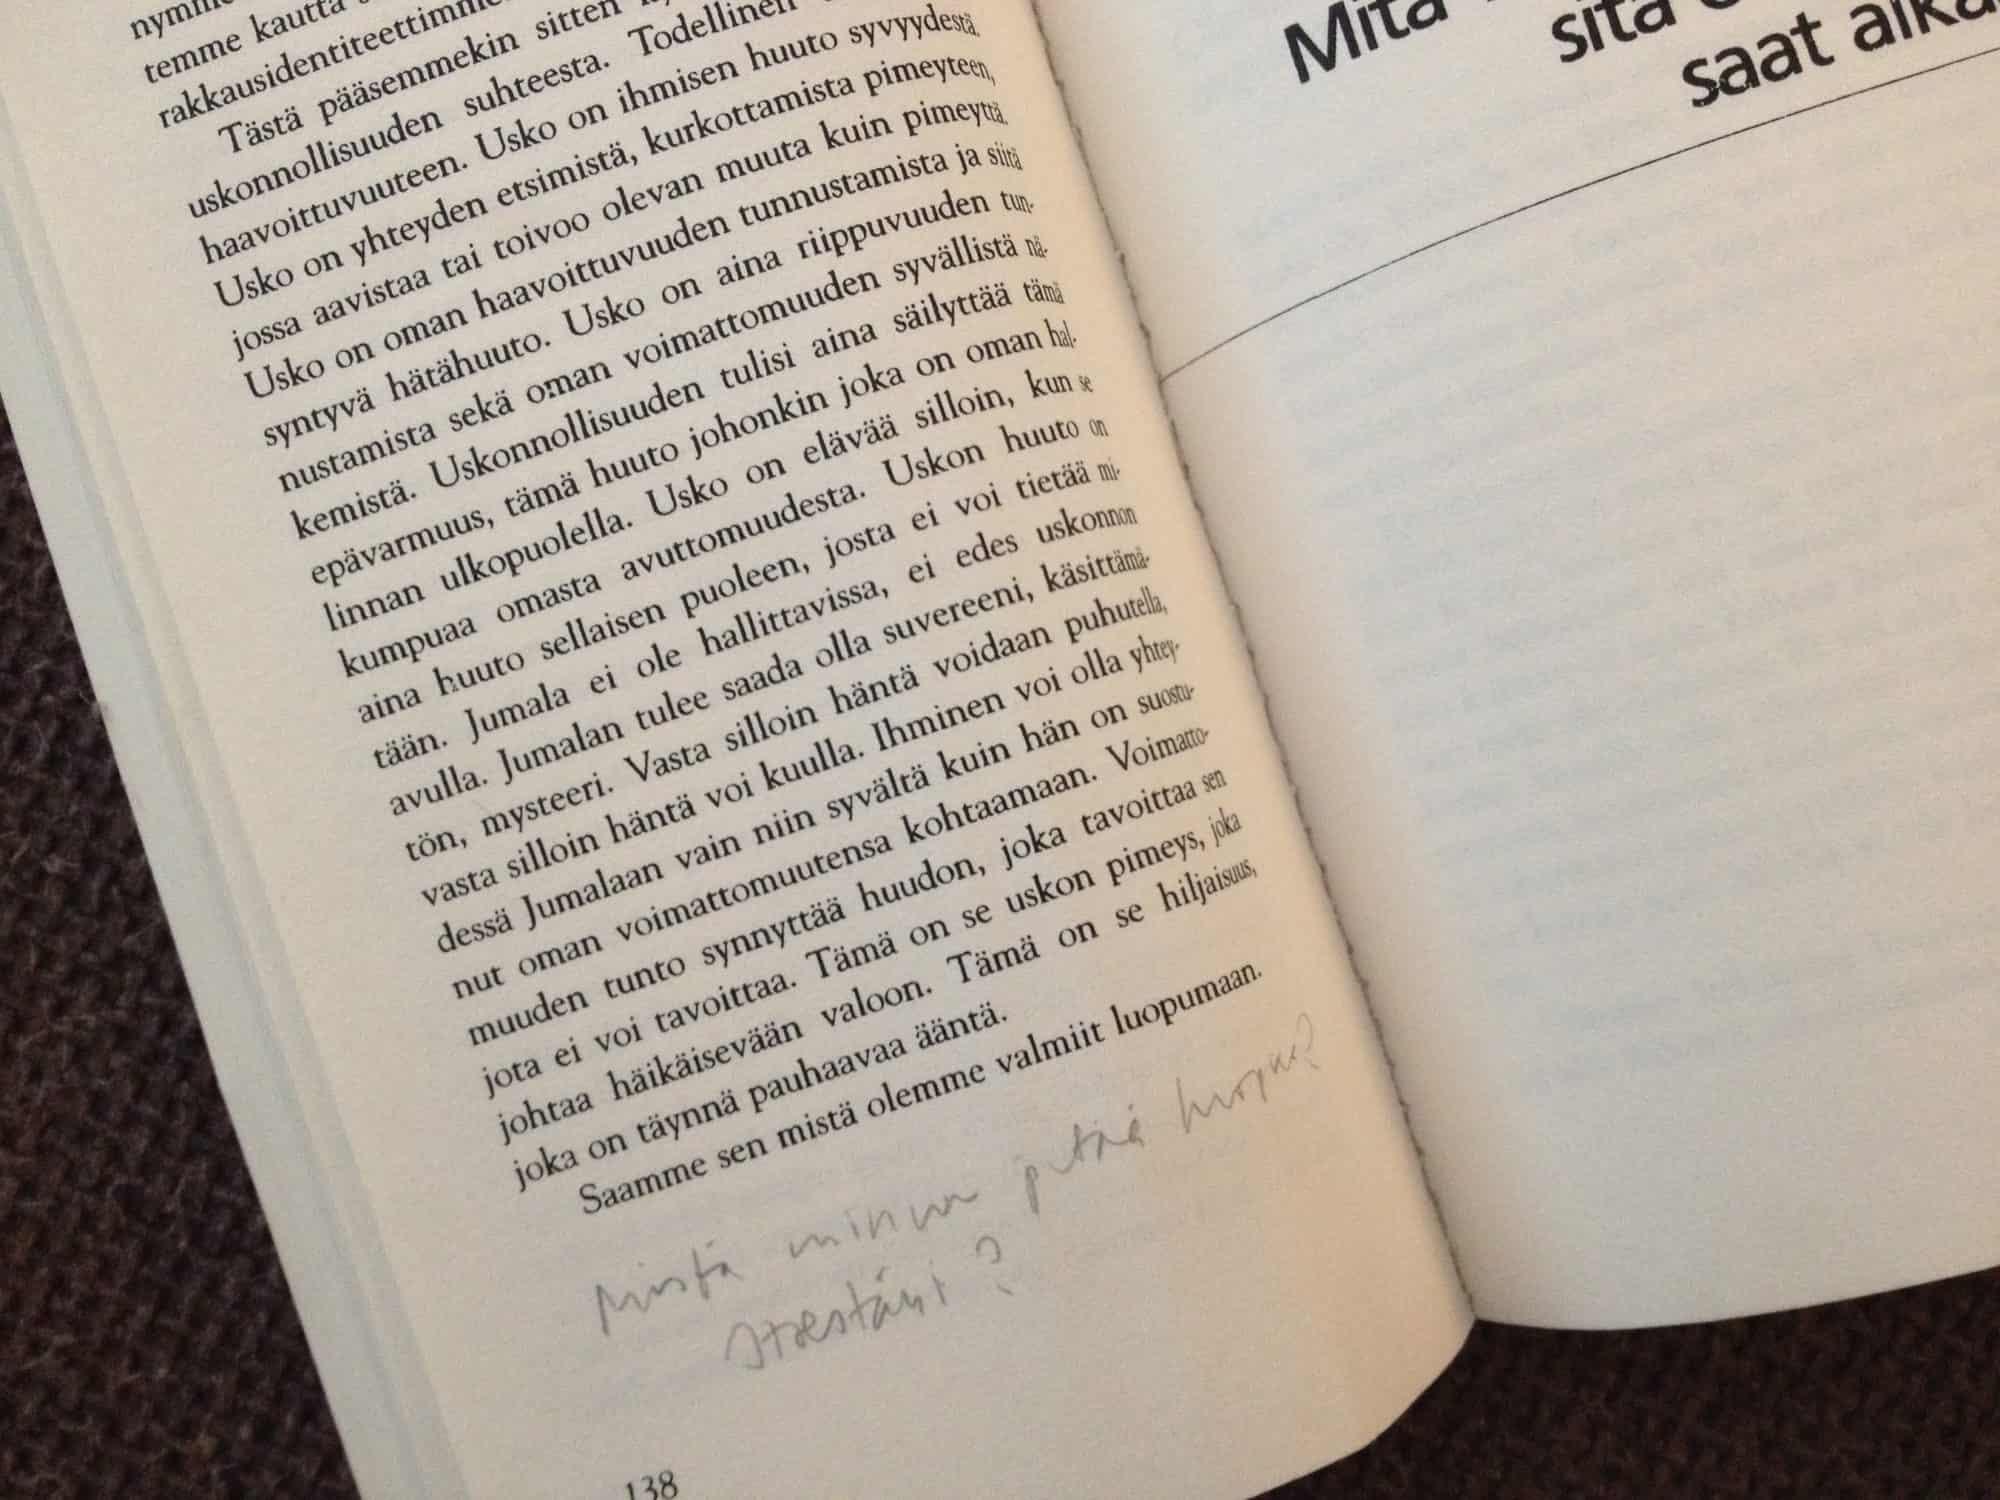 temme kautta
rakkausidentiteettimme
Tästä pääsemmekin sitten
uskonnollisuuden suhteesta. Todellinen
haavoittuvuuteen. Usko on ihmisen huuto syvyydestä.
Usko on yhteyden etsimistä, kurkottamista pimeyteen,
jossa aavistaa tai toivoo olevan muuta kuin pimeyttä.
Usko on oman haavoittuvuuden tunnustamista ja siitä
syntyvä hätähuuto. Usko on aina riippuvuuden tun-
nustamista sekä oman voimattomuuden syvällistä nä-
kemistä. Uskonnollisuuden tulisi aina säilyttää tämä
epävarmuus, tämä huuto johonkin joka on oman hal-
linnan ulkopuolella. Usko on elävää silloin, kun se
kumpuaa omasta avuttomuudesta. Uskon huuto on
aina huuto sellaisen puoleen, josta ei voi tietää mi-
tään. Jumala ei ole hallittavissa, ei edes uskonnon
avulla. Jumalan tulee saada olla suvereeni, käsittämä-
tön, mysteeri. Vasta silloin häntä voidaan puhutella,
vasta silloin häntä voi kuulla. Ihminen voi olla yhtey-
dessä Jumalaan vain niin syvältä kuin hän on suostu-
nut oman voimattomuutensa kohtaamaan. Voimatto-
muuden tunto synnyttää huudon, joka tavoittaa sen
jota ei voi tavoittaa. Tämä on se uskon pimeys, joka
johtaa häikäisevään valoon. Tämä on se hiljaisuus,
joka on täynnä pauhaavaa ääntä.
Saamme sen mistä olemme valmiit luopumaan.
Mistä minun pitää luopua?
Itsestäni?
138
Mitä
sitä
saat